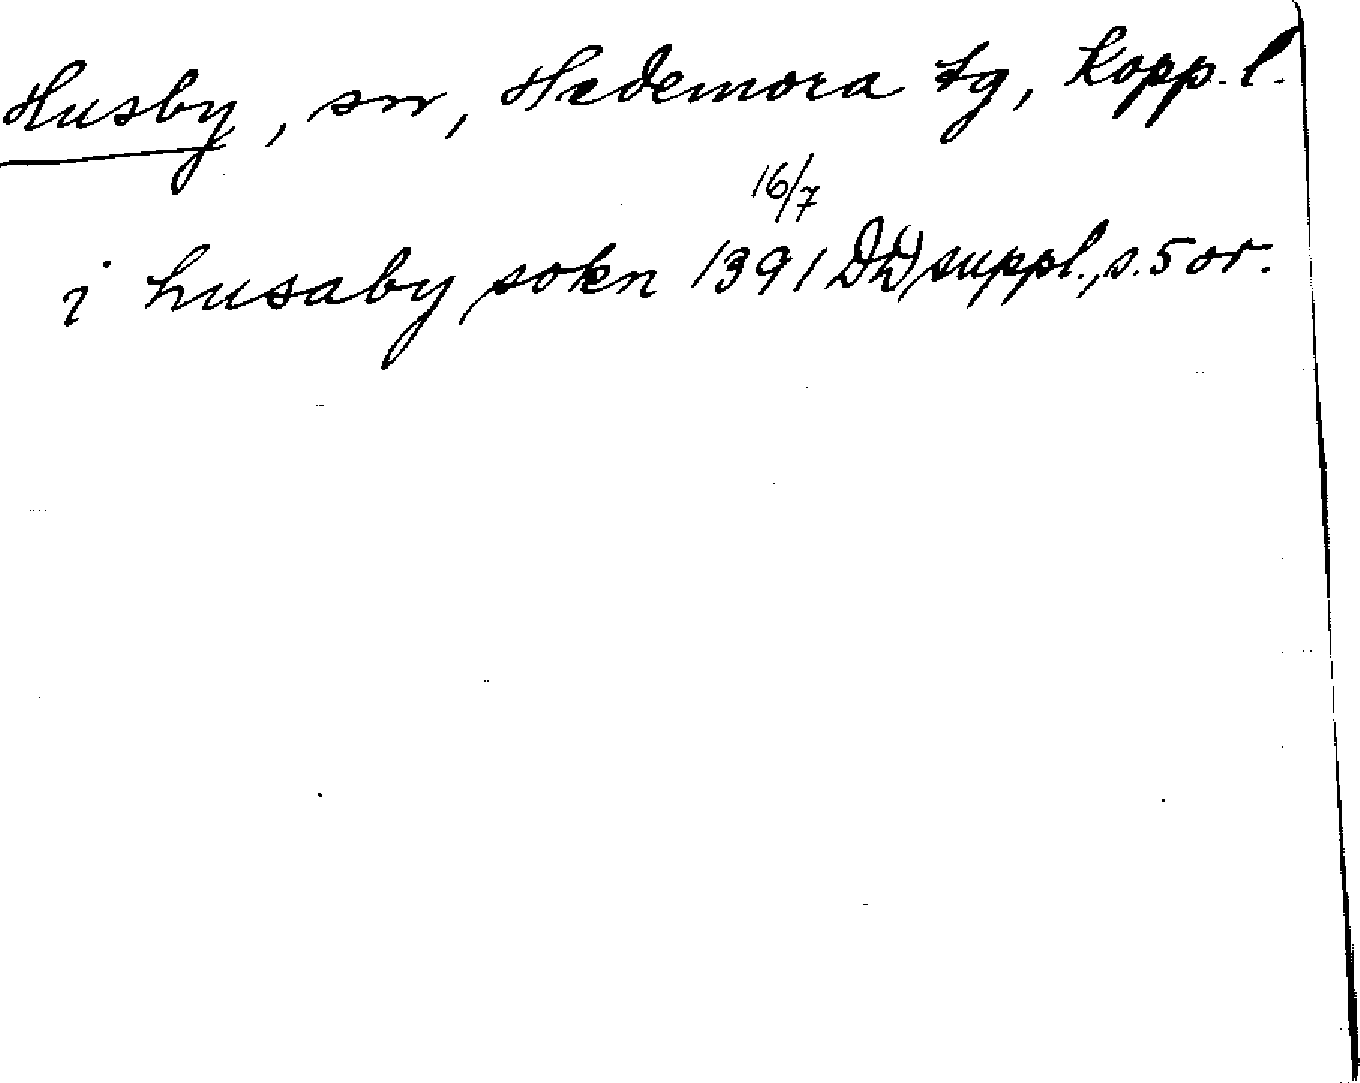 Husby, sn, Hedemora tg, Kopp. l.
16/7
i husaby sokn 1391 DD suppl., s. 5 or.